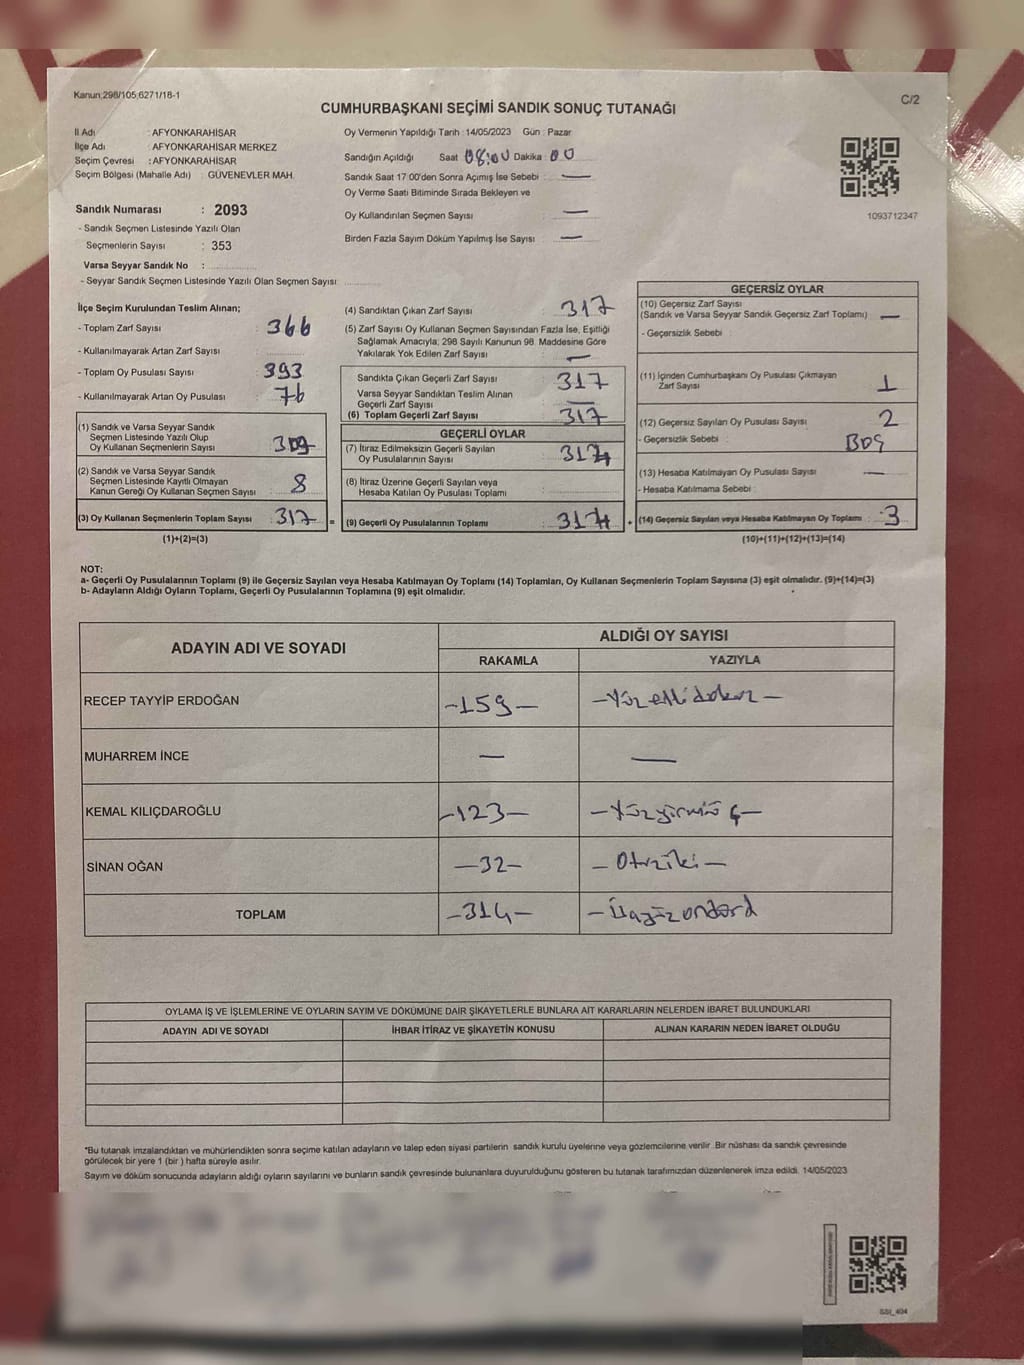 Kanun;298/105;6271/18-1
C/2
CUMHURBAŞKANI SEÇİMİ SANDIK SONUÇ TUTANAĞI
İl Adı : AFYONKARAHİSAR
İlçe Adı : AFYONKARAHİSAR MERKEZ
Seçim Çevresi : AFYONKARAHİSAR
Seçim Bölgesi (Mahalle Adı) : GÜVENEVLER MAH.
Sandık Numarası : 2093
- Sandık Seçmen Listesinde Yazılı Olan
Seçmenlerin Sayısı : 353
Varsa Seyyar Sandık No :
- Seyyar Sandık Seçmen Listesinde Yazılı Olan Seçmen Sayısı
Oy Vermenin Yapıldığı Tarih : 14/05/2023 Gün : Pazar
Sandığın Açıldığı Saat 08:00 Dakika : 00
Sandık Saat 17:00'den Sonra Açımış İse Sebebi : —
Oy Verme Saati Bitiminde Sırada Bekleyen ve
Oy Kullandırılan Seçmen Sayısı —
Birden Fazla Sayım Döküm Yapılmış İse Sayısı : —
1093712347
İlçe Seçim Kurulundan Teslim Alınan;
- Toplam Zarf Sayısı : 366
- Kullanılmayarak Artan Zarf Sayısı :
- Toplam Oy Pusulası Sayısı : 393
- Kullanılmayarak Artan Oy Pusulası : 76
(1) Sandık ve Varsa Seyyar Sandık
Seçmen Listesinde Yazılı Olup
Oy Kullanan Seçmenlerin Sayısı : 309
(2) Sandık ve Varsa Seyyar Sandık
Seçmen Listesinde Kayıtlı Olmayan
Kanun Gereği Oy Kullanan Seçmen Sayısı : 8
(3) Oy Kullanan Seçmenlerin Toplam Sayısı : 317
(1)+(2)=(3)
(4) Sandıktan Çıkan Zarf Sayısı : 317
(5) Zarf Sayısı Oy Kullanan Seçmen Sayısından Fazla İse, Eşitliği
Sağlamak Amacıyla; 298 Sayılı Kanunun 98. Maddesine Göre
Yakılarak Yok Edilen Zarf Sayısı : —
Sandıkta Çıkan Geçerli Zarf Sayısı : 317
Varsa Seyyar Sandıktan Teslim Alınan
Geçerli Zarf Sayısı : —
(6) Toplam Geçerli Zarf Sayısı : 317
GEÇERLİ OYLAR
(7) İtiraz Edilmeksizin Geçerli Sayılan
Oy Pusulalarının Sayısı : 314
(8) İtiraz Üzerine Geçerli Sayılan veya
Hesaba Katılan Oy Pusulası Toplamı :
= (9) Geçerli Oy Pusulalarının Toplamı : 314
GEÇERSİZ OYLAR
(10) Geçersiz Zarf Sayısı
(Sandık ve Varsa Seyyar Sandık Geçersiz Zarf Toplamı) : —
- Geçersizlik Sebebi :
(11) İçinden Cumhurbaşkanı Oy Pusulası Çıkmayan
Zarf Sayısı : 1
(12) Geçersiz Sayılan Oy Pusulası Sayısı : 2
- Geçersizlik Sebebi : BOŞ
(13) Hesaba Katılmayan Oy Pusulası Sayısı : —
- Hesaba Katılmama Sebebi :
+ (14) Geçersiz Sayılan veya Hesaba Katılmayan Oy Toplamı : 3
(10)+(11)+(12)+(13)=(14)
NOT:
a- Geçerli Oy Pusulalarının Toplamı (9) ile Geçersiz Sayılan veya Hesaba Katılmayan Oy Toplamı (14) Toplamları, Oy Kullanan Seçmenlerin Toplam Sayısına (3) eşit olmalıdır. (9)+(14)=(3)
b- Adayların Aldığı Oyların Toplamı, Geçerli Oy Pusulalarının Toplamına (9) eşit olmalıdır.
ADAYIN ADI VE SOYADI ALDIĞI OY SAYISI
RAKAMLA YAZIYLA
RECEP TAYYİP ERDOĞAN -159- -Yüzellidokuz-
MUHARREM İNCE — —
KEMAL KILIÇDAROĞLU -123- -Yüzyirmiüç-
SİNAN OĞAN -32- -Otuziki-
TOPLAM -314- -Üçyüzondört
OYLAMA İŞ VE İŞLEMLERİNE VE OYLARIN SAYIM VE DÖKÜMÜNE DAİR ŞİKAYETLERLE BUNLARA AİT KARARLARIN NELERDEN İBARET BULUNDUKLARI
ADAYIN ADI VE SOYADI İHBAR İTİRAZ VE ŞİKAYETİN KONUSU ALINAN KARARIN NEDEN İBARET OLDUĞU
*Bu tutanak imzalandıktan ve mühürlendikten sonra seçime katılan adayların ve talep eden siyasi partilerin sandık kurulu üyelerine veya gözlemcilerine verilir. Bir nüshası da sandık çevresinde
görülecek bir yere 1 (bir) hafta süreyle asılır.
Sayım ve döküm sonucunda adayların aldığı oyların sayılarını ve bunların sandık çevresinde bulunanlara duyurulduğunu gösteren bu tutanak tarafımızdan düzenlenerek imza edildi. 14/05/2023
SSI_404